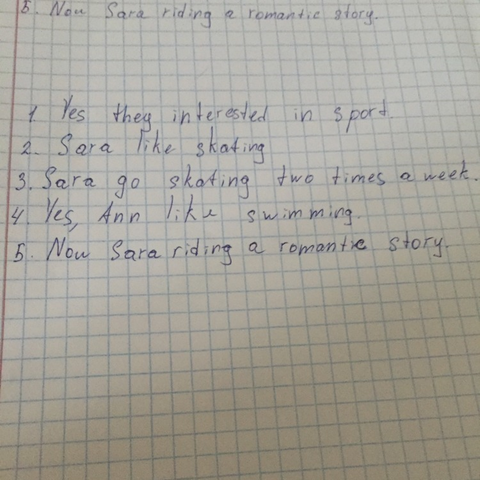 5. Now Sara riding a romantic story.
1. Yes they interested in sport.
2. Sara like skating
3. Sara go skating two times a week.
4. Yes, Ann like swimming.
5. Now Sara riding a romantic story.